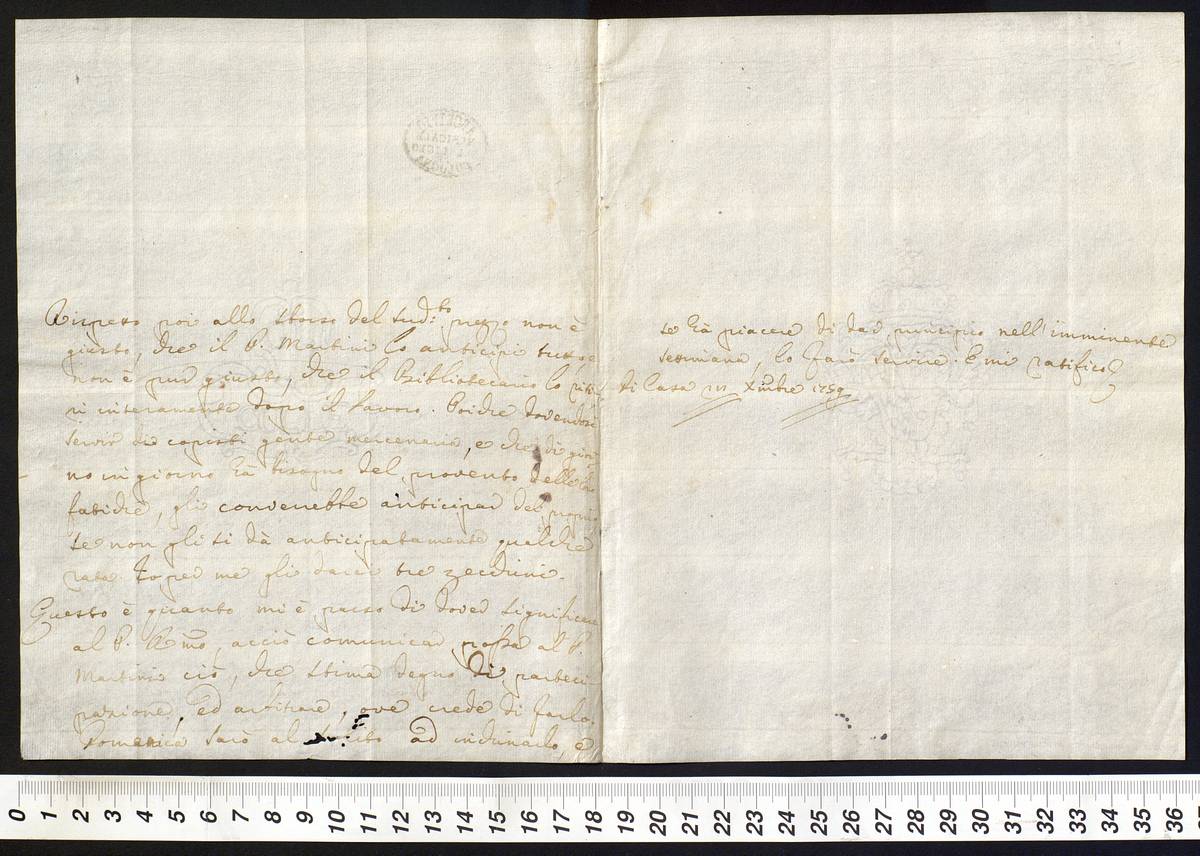 Rispetto poi allo sborso del sud:to prezzo non è
giusto, che il P. Martini lo anticipi tutto,
non è pur giusto, che il Bibliotecario lo
ri interamente dopo il lavoro. Poiche dovendosi
servir di copisti gente mercenaria, e che di gior
no in giorno hà bisogno del provento delle lor
fatiche, gli converrebbe anticipar del proprio
se non gli si dà anticipatamente qualche
rata. Io per me gli darei tre zecchini.
Questo è quanto mi è parso di dover significare
al P. Rmo, acciò comunicar possa al P.
Martini ciò, che stima degno di parteci
pazione, ed arbitrare, ove crede di farlo.
Domenica sarò al solito ad inchinarlo, e
se hà piacere di dar principio nell'imminente
settimana, lo farò servire. E mi ratifico
Di Casa Xmbre 1759
0 1 2 3 4 5 6 7 8 9 10 11 12 13 14 15 16 17 18 19 20 21 22 23 24 25 26 27 28 29 30 31 32 33 34 35 36